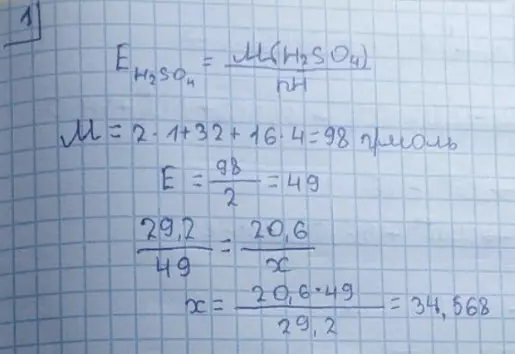 1
E H₂SO₄ = M(H₂SO₄) / nH
M = 2·1+32+16·4=98 г/моль
E = 98 / 2 = 49
29,2 / 49 = 20,6 / x
x = 20,6·49 / 29,2 = 34,568